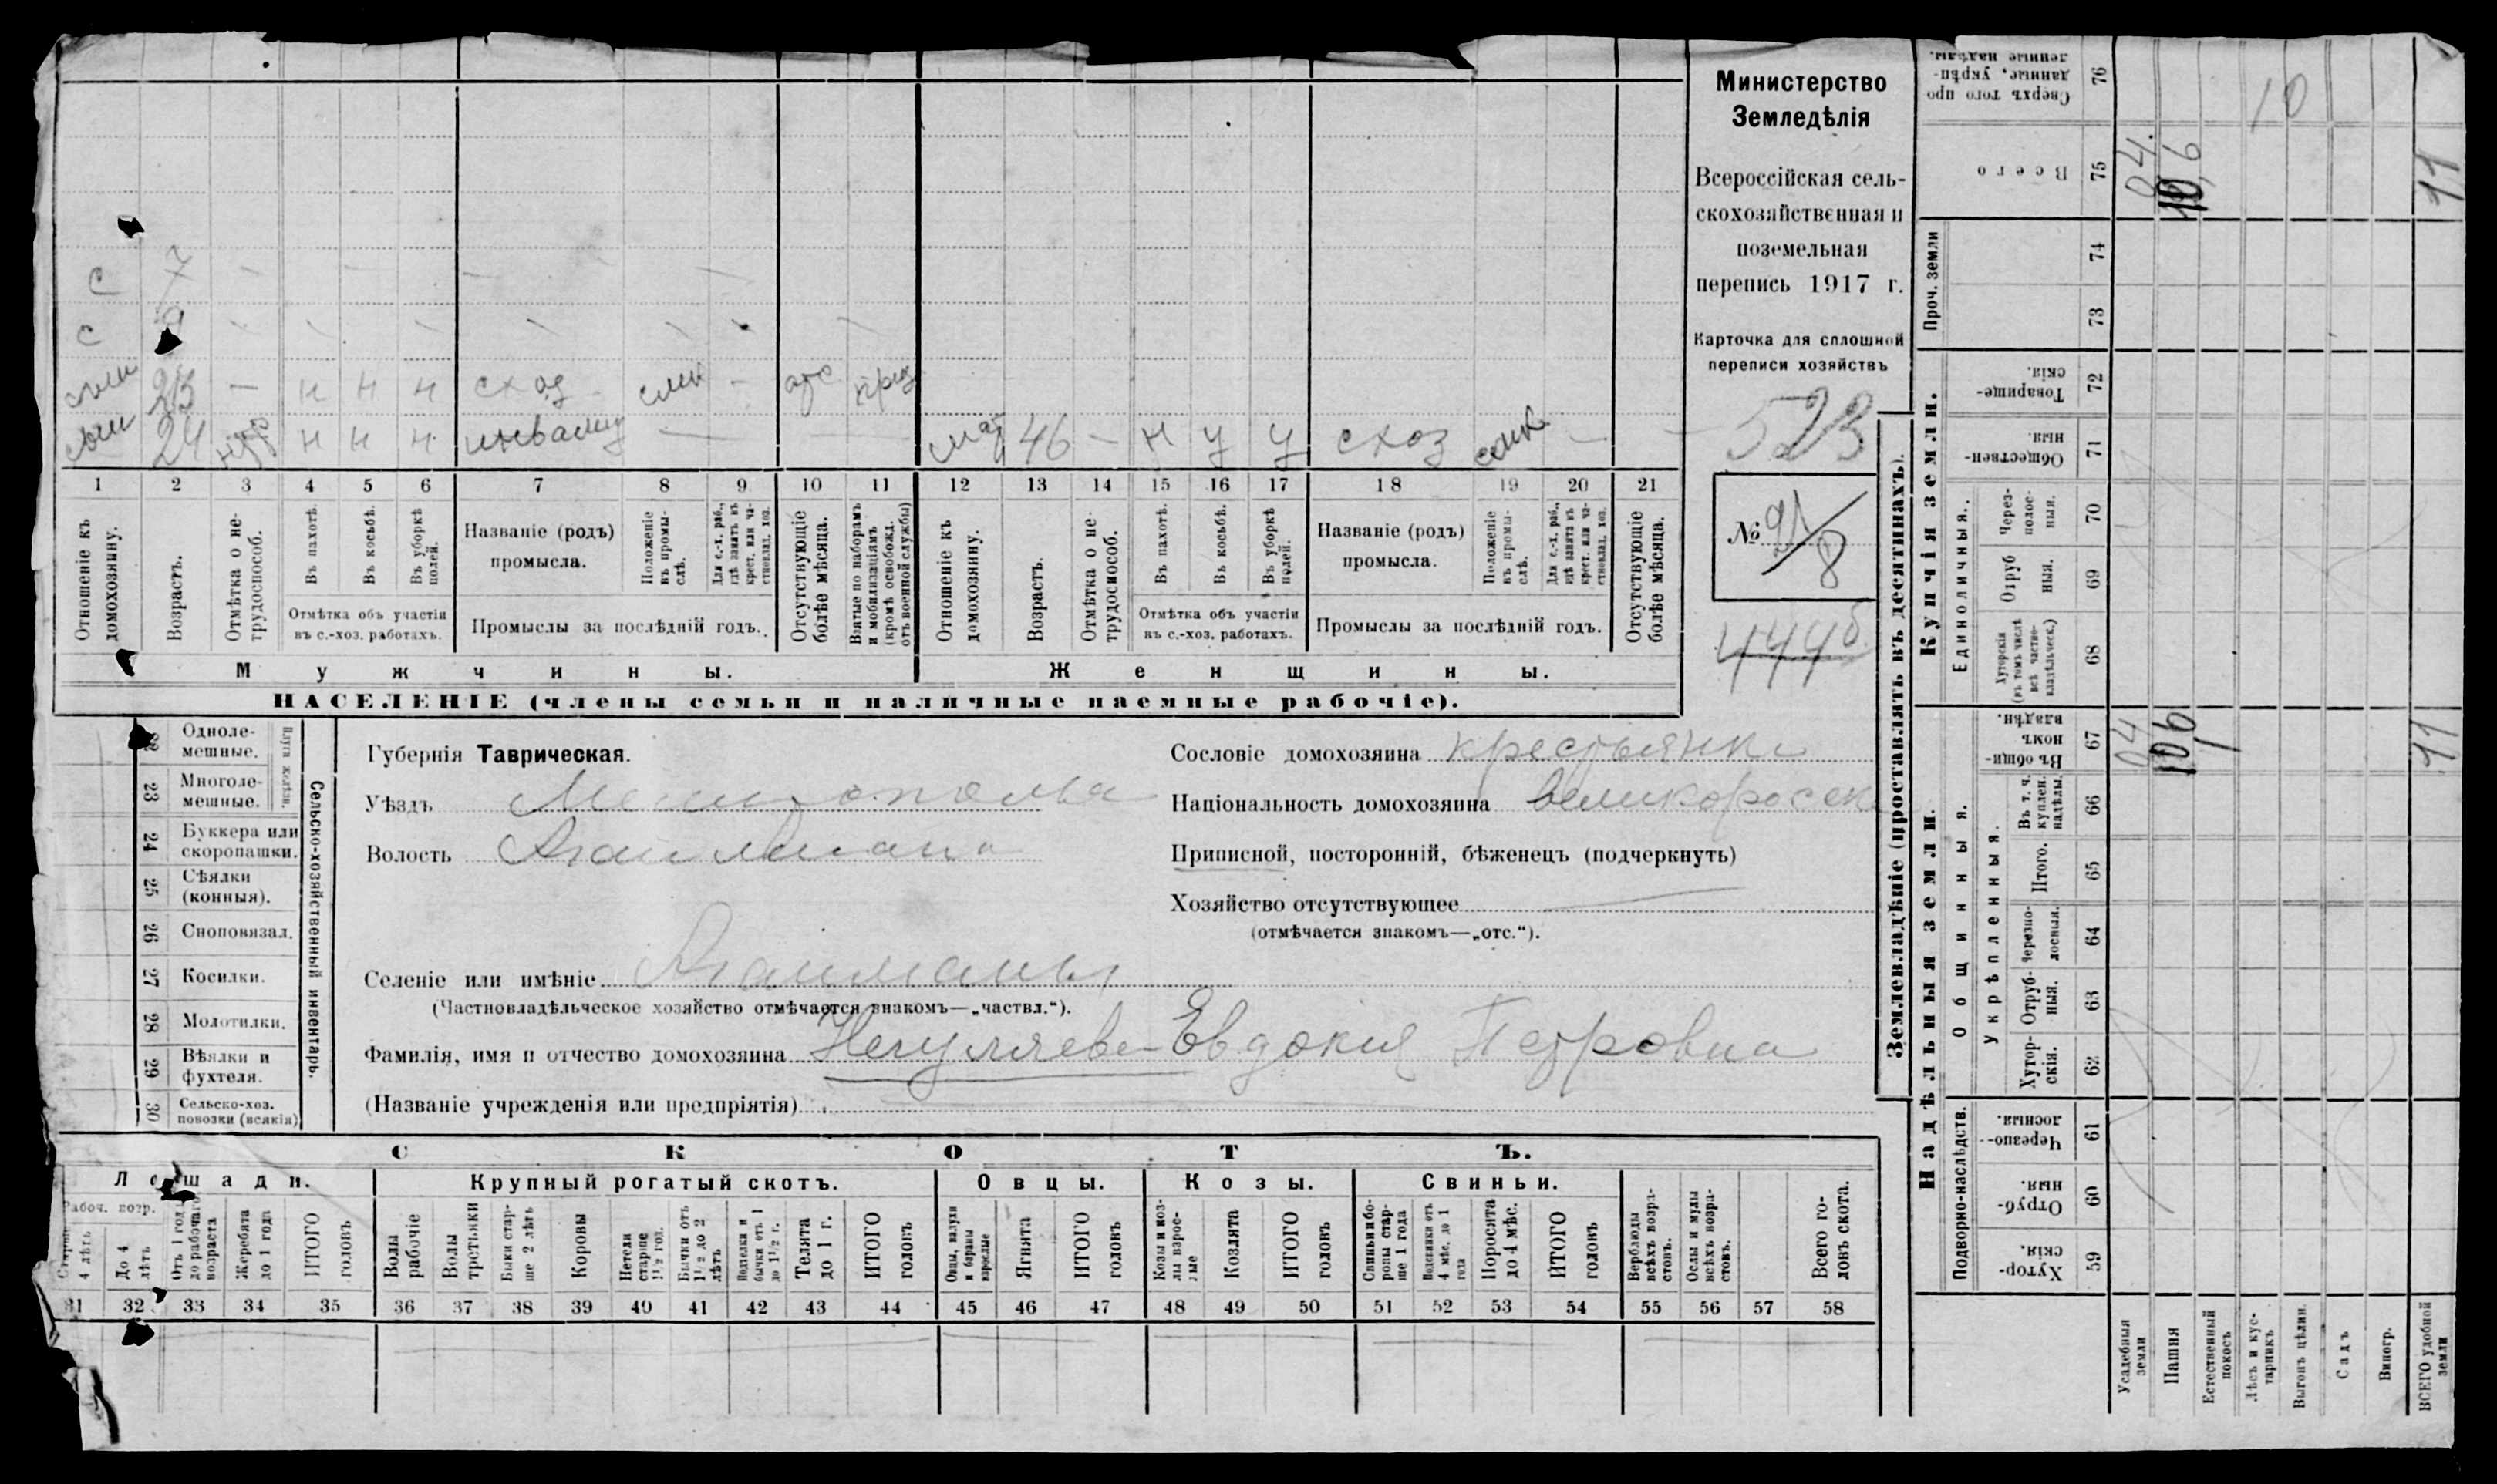 Министерство
Земледѣлія
Всероссійская сель-
скохозяйственная и
поземельная
перепись 1917 г.
Карточка для сплошной
переписи хозяйствъ
523
№ 21/8
444б
С 7 — — — — — — —
С 9 — — — — — — —
сын 23 — н н н схоз — отс
сын 24 н н н инвалид — — — мат 46 — н у у схоз — —
1 2 3 4 5 6 7 8 9 10 11 12 13 14 15 16 17 18 19 20 21
Отношеніе къ домохозяину.
Возрастъ.
Отмѣтка о не-трудоспособ.
Въ пахотѣ.
Въ косьбѣ.
Въ уборкѣ полей.
Отмѣтка объ участіи
въ с.-хоз. работахъ.
Названіе (родъ)
промысла.
Положеніе въ промы-слѣ.
Для с.-х. раб., гдѣ занятъ въ крест. или ча-стновлад. хоз.
Промыслы за послѣдній годъ.
Отсутствующіе болѣе мѣсяца.
Взятые по наборамъ и мобилизаціямъ (кромѣ освобожд. отъ военной службы)
Отношеніе къ домохозяину.
Возрастъ.
Отмѣтка о не-трудоспособ.
Въ пахотѣ.
Въ косьбѣ.
Въ уборкѣ полей.
Отмѣтка объ участіи
въ с.-хоз. работахъ.
Названіе (родъ)
промысла.
Положеніе въ промы-слѣ.
Для с.-х. раб., гдѣ занята въ крест. или ча-стновлад. хоз.
Промыслы за послѣдній годъ.
Отсутствующіе болѣе мѣсяца.
Мужчины. Женщины.
НАСЕЛЕНІЕ (члены семьи и наличные наемные рабочіе).
Сельско-хозяйственный инвентарь.
Плуги желѣзн.
Одноле-
мешные.
23 Многоле-
мешные.
24 Буккера или
скоропашки.
25 Сѣялки
(конныя).
26 Сноповязал.
27 Косилки.
28 Молотилки.
29 Вѣялки и
фухтеля.
30 Сельско-хоз.
повозки (всякія)
Губернія Таврическая.
Уѣздъ Мелитополь
Волость Агайман
Селеніе или имѣніе Агайманы
(Частновладѣльческое хозяйство отмѣчается знакомъ—„частвл.“).
Фамилія, имя и отчество домохозяина Негуляева Евдокия Петровна
(Названіе учрежденія или предпріятія)
Сословіе домохозяина крестьянка
Національность домохозяина великоросск
Приписной, посторонній, бѣженецъ (подчеркнуть)
Хозяйство отсутствующее —
(отмѣчается знакомъ—„отс.“).
СКОТЪ.
Лошади. Крупный рогатый скотъ. Овцы. Козы. Свиньи.
Рабоч. возр.
4 лѣтъ
До 4 лѣтъ
Отъ 1 года до рабочаго возраста
Жеребята до 1 года
ИТОГО головъ
Волы рабочіе
Волы третьяки
Быки стар-ше 2 лѣтъ
Коровы
Нетели старше 1½ год.
Бычки отъ 1½ до 2 лѣтъ
Подтелки и бычки отъ 1 до 1½ г.
Телята до 1 г.
ИТОГО головъ
Овцы, валухи и бараны взрослые
Ягнята
ИТОГО головъ
Козы и коз-лы взрос-лые
Козлята
ИТОГО головъ
Свиньи и бо-ровы стар-ше 1 года
Подсвинки отъ 4 мѣс. до 1 года
Поросята до 4 мѣс.
ИТОГО головъ
Верблюды всѣхъ возра-стовъ.
Ослы и мулы всѣхъ возра-стовъ.
Всего го-ловъ скота.
31 32 33 34 35 36 37 38 39 40 41 42 43 44 45 46 47 48 49 50 51 52 53 54 55 56 57 58
Землевладѣніе (проставлять въ десятинахъ).
Надѣльныя земли.
Подворно-наслѣдств.
Хутор-скія. 59
Отруб-ныя. 60
Черезпо-лосныя. 61
Общинныя.
Укрѣпленныя.
Хутор-скія. 62
Отруб-ныя. 63
Черезпо-лосныя. 64
Итого. 65
Въ т. ч. куплен. надѣлы. 66
Въ общи-номъ владѣн. 67
Купчія земли.
Единоличныя.
Хуторскія (въ томъ числѣ всѣ частно-владѣльческ.) 68
Отруб-ныя. 69
Через-полос-ныя. 70
Обществен-ныя. 71
Товарище-скія. 72
Проч. земли
73
74
Всего 75
Сверхъ того про-данные, укрѣп-ленные надѣлы. 76
Усадебныя земли 04 04.
Пашня 106 10,6
Естественный покосъ
Лѣсъ и кус-тарникъ 10
Выгонъ цѣлин.
Садъ
Виногр.
ВСЕГО удобной земли 11 11